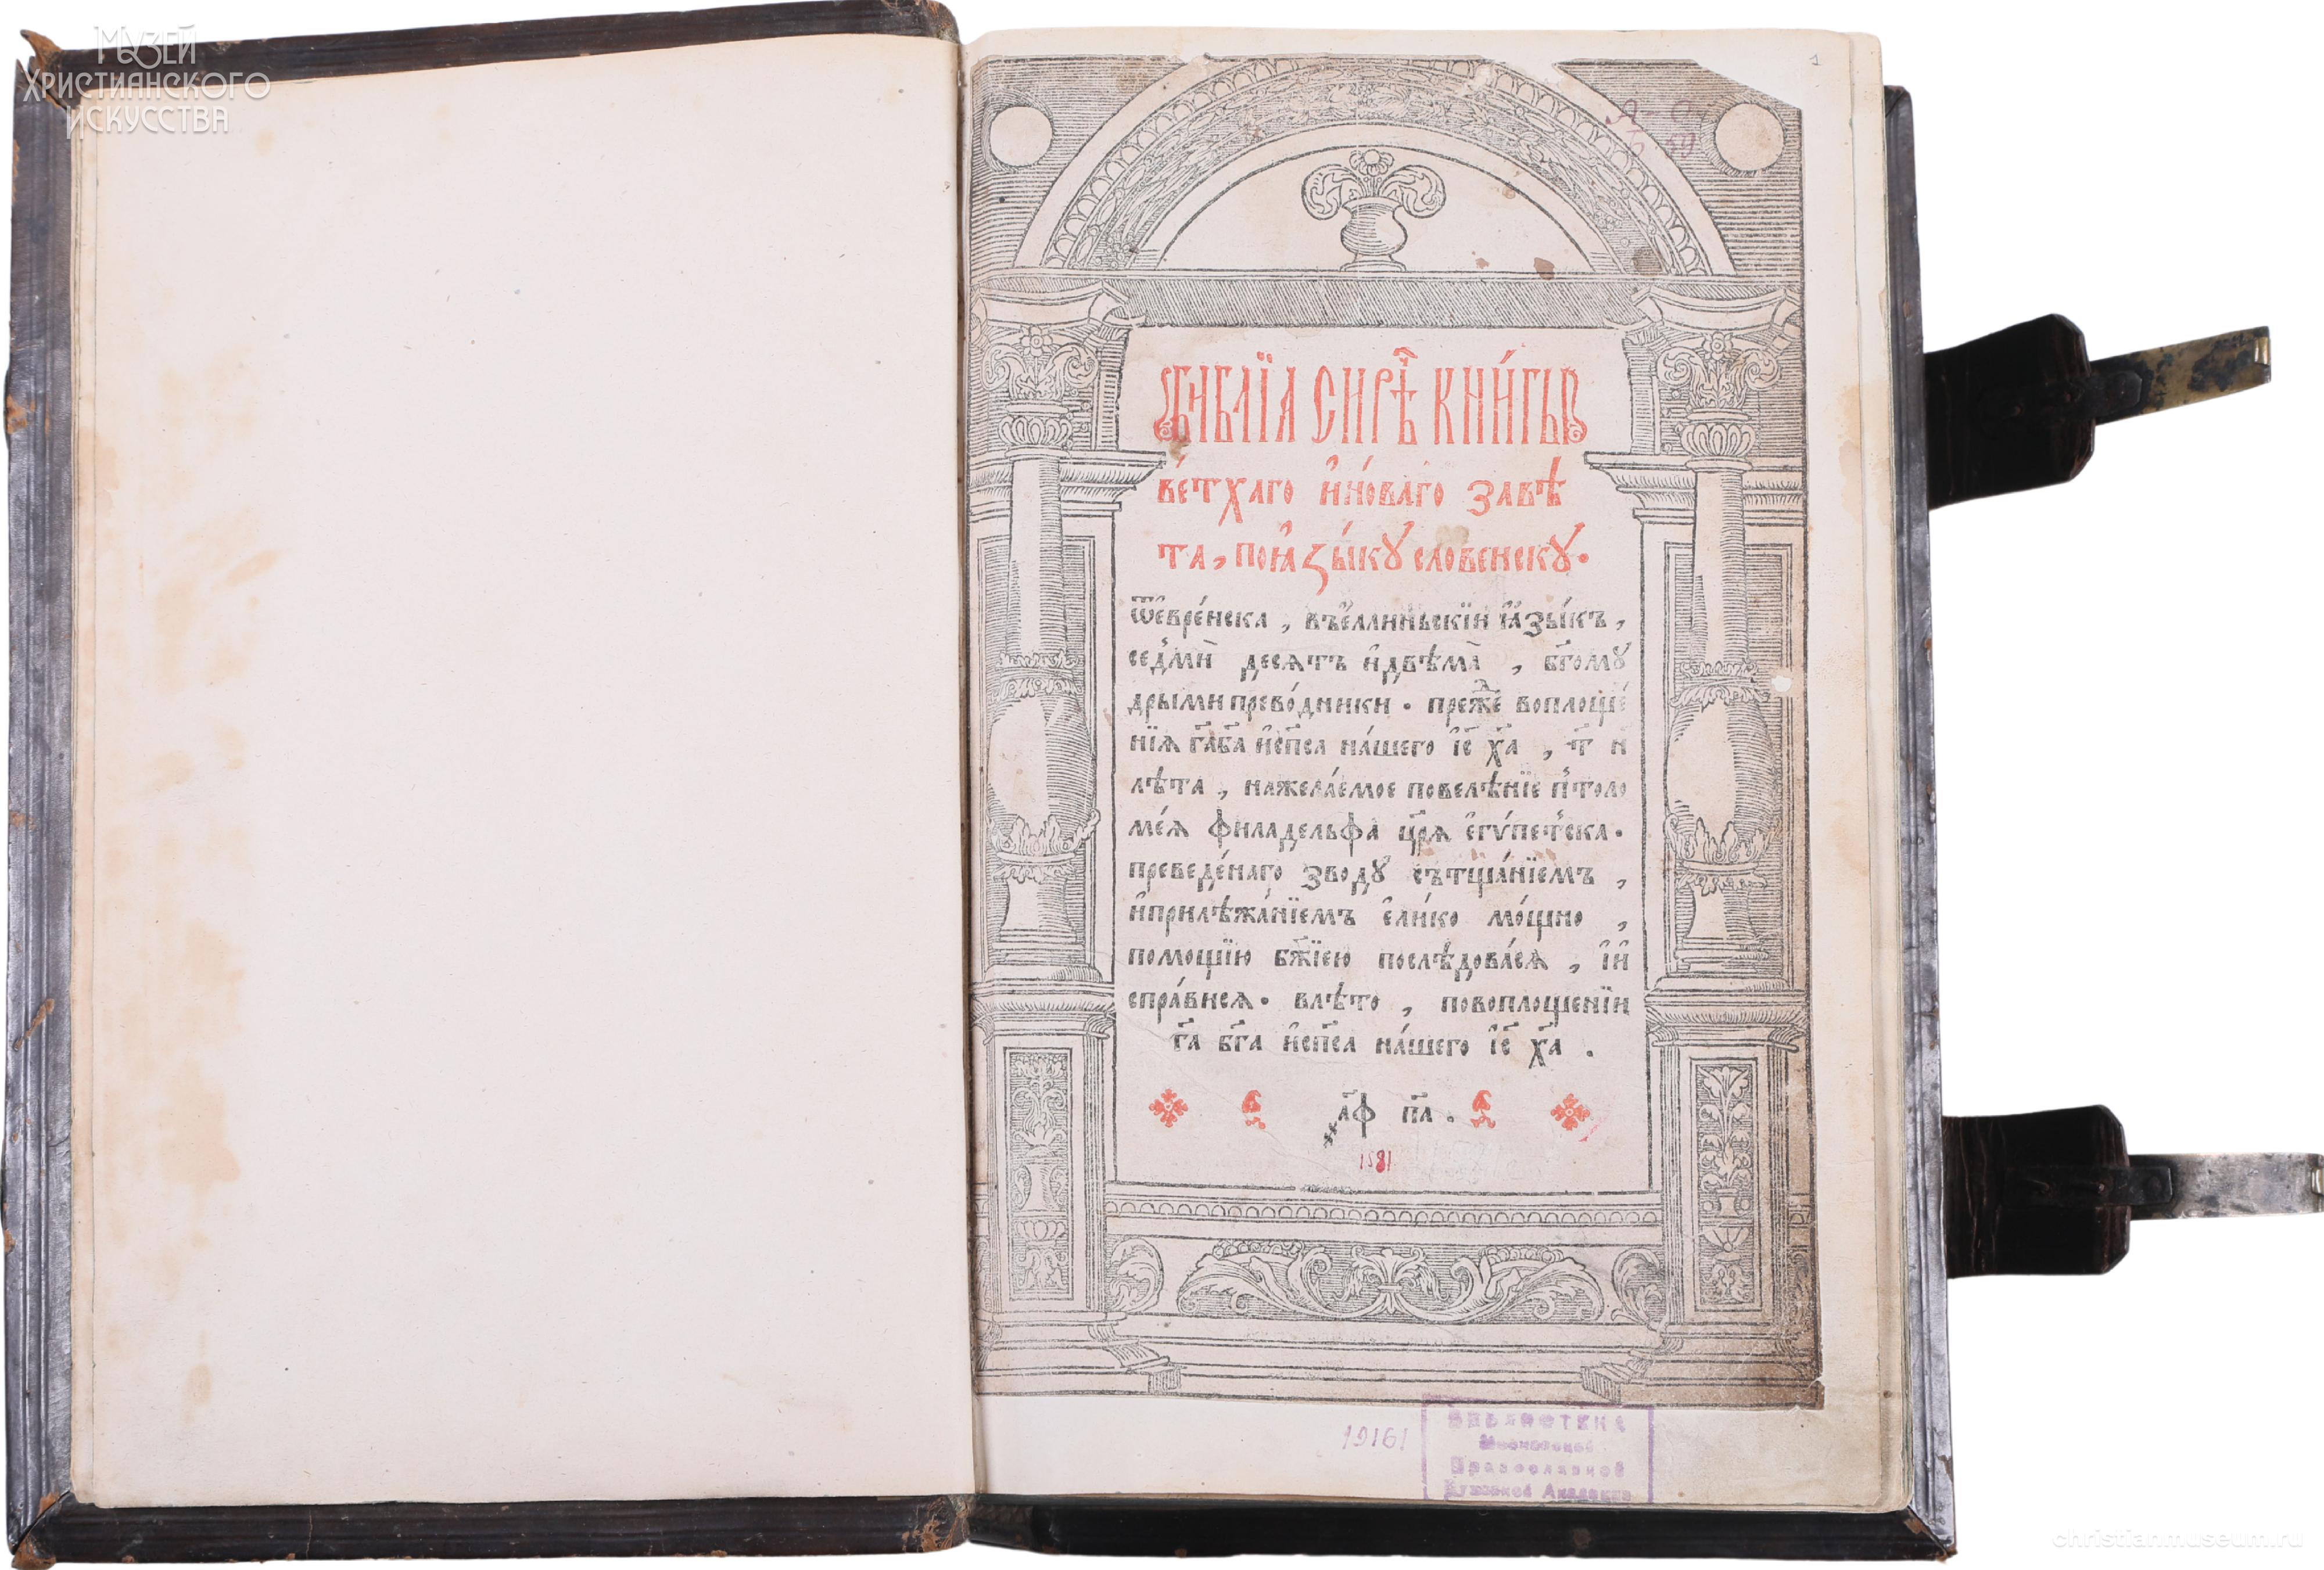 МУЗЕЙ
ХРИСТИАНСКОГО
ИСКУССТВА
1
БИБЛЇА СИРѢ̾Ч КНИ́ГЫ
ве́тхаго и҆но́ваго завѣ
та, поꙗ҆зы́кꙋ словенскꙋ.
ѿе҆вре́йска, въе҆ллиньскїи ꙗ҆зы́къ,
седмь десѧтъ и҆двѣма̀, бг҃омꙋ
дрыми прево́дники. преже воплоще́
нїѧ гд҃а бг҃а и҆сп҃са на́шего і҆с҃ х҃а, т҃ н҃
лѣта, нажела́емое повелѣ́нїе пто́ло
ме́ѧ филаделфа цр҃ѧ є҆гѵ́петска.
преведе́наго зводꙋ сътща́нїемъ,
и҆прилѣжа́нїемъ є҆ли́ко мо́щно,
помощїю бж҃їею послѣдова́сѧ, і҆и
спра́висѧ. влѣ́то, повоплощенїи
гд҃а бг҃а и҆сп҃са на́шего і҆с҃ х҃а.
҂аф҃ па҃.
1581
19161
БИБЛИОТЕКА
Московской
Православной
Духовной Академии
christianmuseum.ru